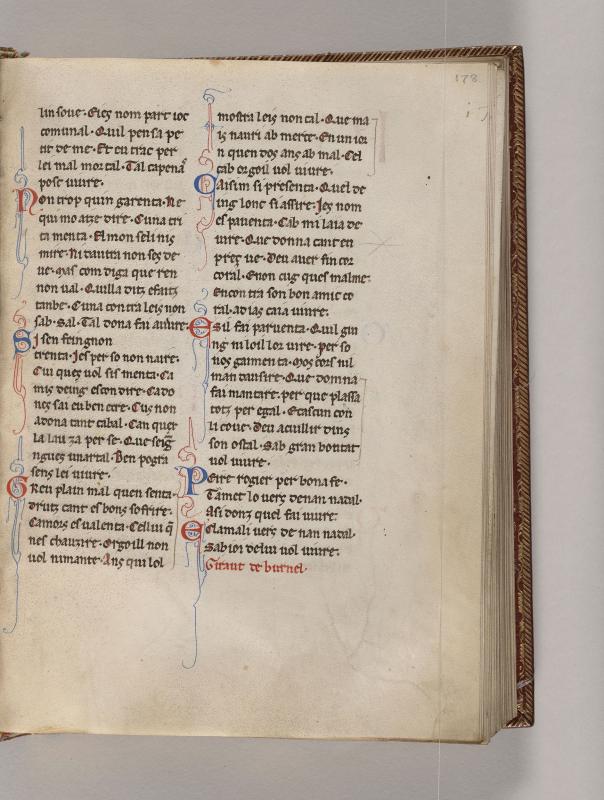 178
lin soue. Eieç nom part ioc
comunal. Quil pensa pe
ut de me. Et eu trac per
lei mal mortal. Tal capena
pose uiure.
Non trop quin garenta. Ne
qui mo auze dire. Cuna tri
ta menta. El mon seli niς
mire. Ni dautra non seς de
ue. Mas com diga que ren
non ual. Quilla ditz efaitz
tanbe. Cuna contra leis non
sab. Sal. Tal dona fai auiure.
Si sen feingnon
trenta. Ies per so non uaire.
Cui queς uol sis menta. Ca
mis deing escondire. Cado
neς sai eu ben cere. Cus non
adona tant cabal. Can quer
la lauza per se. Que seig
ngues unartal. Ben pogra
senς lei uiure.
Greu plain mal quen senta.
drutz cant es bons sofrire.
Camors es ualenta. Cellui q̃
nes chauzire. Orgoill non
uol nimante. Anς qui lol
mostra leis non cal. Que ma
is nauri ab merce. En un ior
n quen dos anς ab mal. Cel
cab orgoil uol uiure.
Caisim si presenta. Quel de
ing lonc si assire. Ies nom
espauenta. Cab mi laia de
uire. Que donna cant en
preς ue. Deu auer fin cor
coral. Enon cug ques malme.
Encontra son bon amic co
ral. adias caia uiure.
Esil fai paruenta. Quil gui
ng ni loil lor uire. per so
nos gaimenta. Mos cors uil
man dausire. Que domna
fai mantaire. per que plassa
totz per egal. Etascun con
li coue. Deu acuillir dinς
son ostal. Sab gran bontat
uol uiure.
Peire rogier per bona fe.
Tamet lo uers denan nadal.
Asi donz quel fai uiure.
Eclamali uers de nan nadal.
Sabior delui uol uiure.
Giraut de burnel.